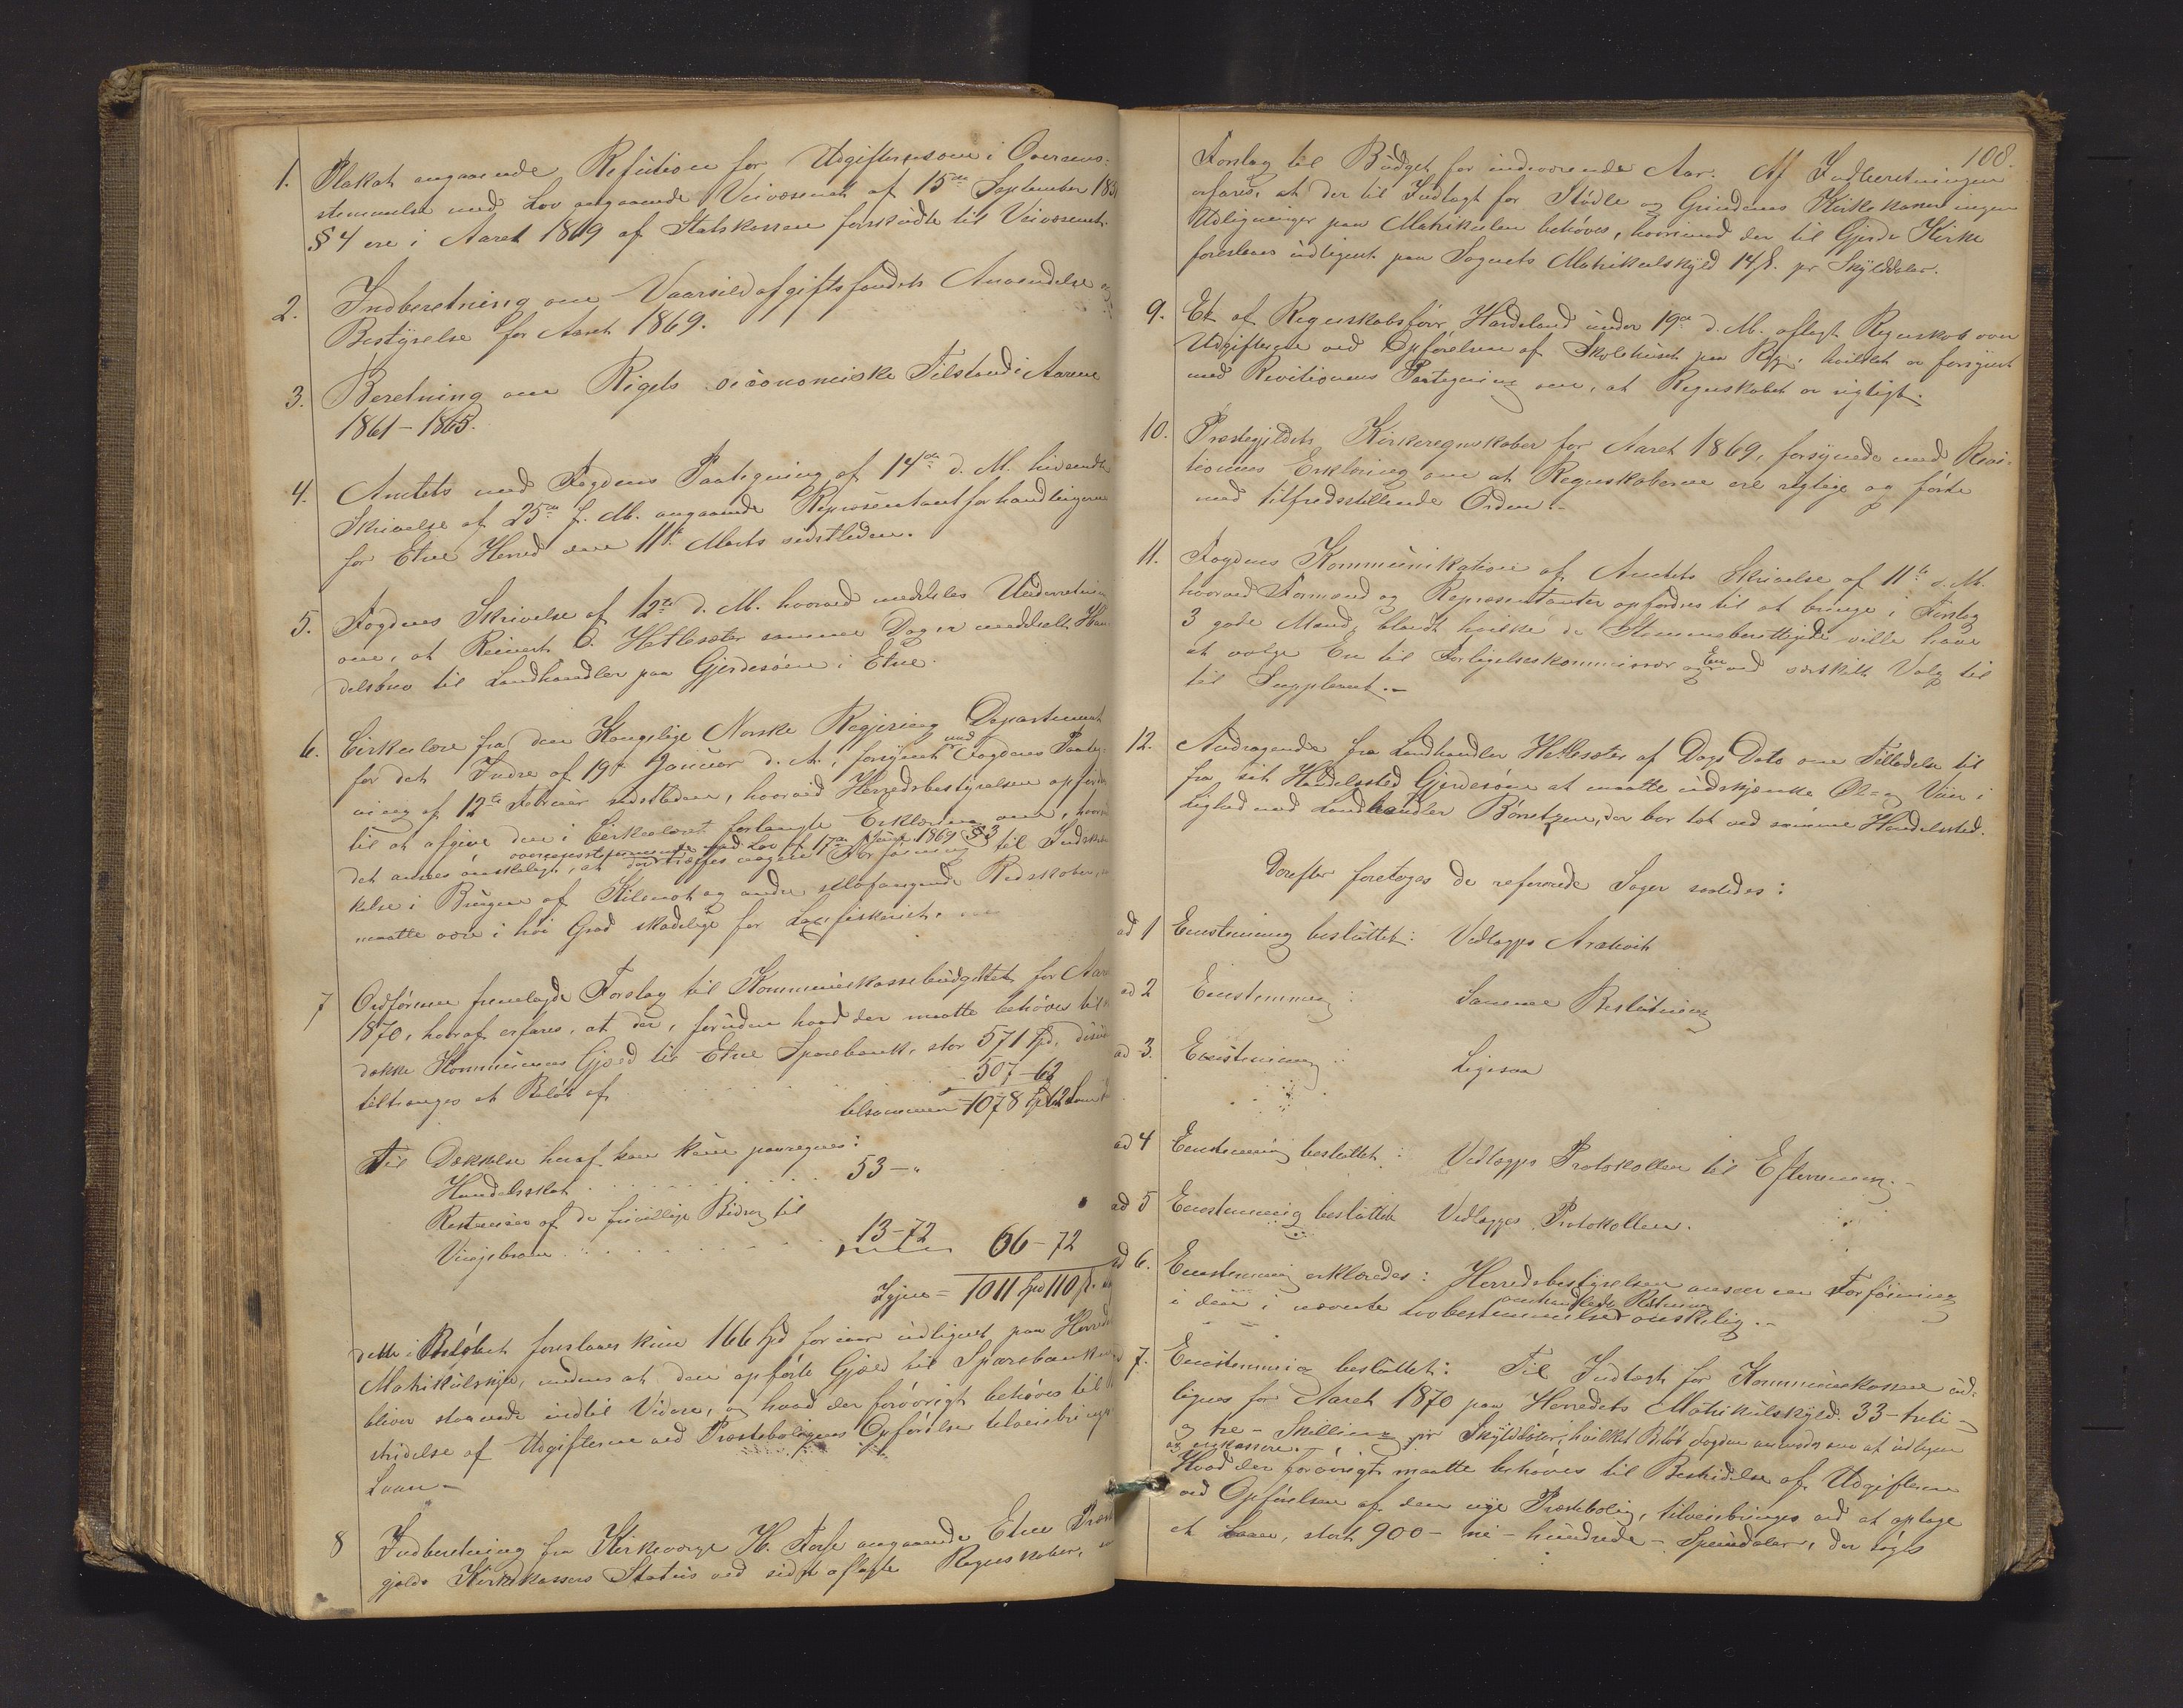 1. Plakat angaaende Refusion for Udgifter, som i Overens-
stemmelse med Lov angaaende Veivæsenet af 15de September 185
§ 4 ere i Aaret 1869 af Statskassen forskudte til Veivæsenet.
2. Indberetning om Vaarsildafgiftsfondets Anvendelse og
Bestyrelse for Aaret 1869.
3. Beretning om Rigets oeconomiske Tilstand i Aarene
1861 - 1865.
4. Amtets med Fogdens Paategning af 14de d. M. hidsendte
Skrivelse af 25de f. M. angaaende Repræsentantforhandlingerne
for Etne Herred den 11te Marts sidstleden.
5. Fogdens Skrivelse af 12te d. M. hvorved meddeles Underretning
om, at Reinert O. Hetlesæter samme Dag er meddelt Han-
delsbrev til Landhandler paa Gjerdesøen i Etne.
6. Cirkulære fra den Kongelige Norske Regjering Departement
for det Indre af 19de Januar d. A., forsynet med Fogdens Paateg-
ning af 12te Februar sidstleden, hvorved Herredsbestyrelsen opfordres
til at afgive den i Cirkulæret forlangte Erklæring om, hvorvidt
det ansees ønskeligt, at der overensstemmende med Lov af 17de Juni 1869 § 3 træffes nogen Forføining til Indskræn-
kelse i Brugen af Kilenot og andre selvfangende Redskaber,
maatte være i høi Grad skadelige for Laxefiskeriet.
7 Ordføreren fremlagde Forslag til Kommunekassebudgettet for Aaret
1870, hvoraf erfares, at der, foruden hvad der maatte behøves til at
dække Kommunens Gjæld til Etne Sparebank, stor 571 Spd, desuden
tiltrænges et Beløb af . . . 507 - 62
tilsammen = 1078 Spd 62
Til Dækkelse heraf kan kun paaregnes:
Handelsskat . . . . . . . . 53 - "
Restancer af de frivillige Bidrag til
Vinjebroen . . . . . . . . 13 - 72 66 - 72
Igjen = 1011 Spd 110 s.
dette Beløbet foreslaaes kun 166 Spd for iaar udlignet paa Herredets
Matrikulskyld, medens at den opførte Gjæld til Sparebanken
bliver staaende indtil Videre, og hvad der forøvrigt behøves til Be-
stridelse af Udgifterne ved Præsteboligens Opførelse tilveiebringes
Laan. -
8 Indberetning fra Kirkeværge H. Torse angaaende Etne Præste-
gjelds Kirkekassers Status ved sidst aflagte Regnskaber,
108.
Forslag til Budget for indeværende Aar. Af Indberetningen
erfares, at der til Indtægt for Stødle og Grindems Kirkekasser ingen
Udligninger paa Matrikulen behøves, hvorimod der til Gjerde Kirke
foreslaaes udlignet paa Sognets Matrikulskyld 14 s. pr Skylddaler.
9. Et af Regnskabsfører Hardeland under 19de d. M. aflagt Regnskab over
Udgifterne ved Opførelsen af Skolehuset paa Rygg, hvilket er forsynet
med Revisionens Paategning om, at Regnskabet er rigtigt.
10. Præstegjeldets Kirkeregnskaber for Aaret 1869, forsynede med Revi-
sionens Erklæring om at Regnskaberne ere rigtige og førte
med tilfredsstillende Orden. -
11. Fogdens Kommunikation af Amtets Skrivelse af 11te d. M.
hvorved Formænd og Repræsentanter opfordres til at bringe i Forslag
3 gode Mænd, blandt hvilke de Stemmeberettigede ville have
at vælge En til Forligelseskommissær og En ved særskilt Valg til
til Suppleant. -
12. Andragende fra Landhandler Hetlesæter af Dags Dato om Tilladelse til
fra sit Handelssted Gjerdesøen at maatte udskjænke Øl- og Viin i
Lighed med Landhandler Børretzen, der bor tæt ved samme Handelssted.
Derefter foretoges de refererede Sager saaledes:
ad 1 Eenstemmig besluttet: Vedlægges Archivet
ad 2 Eenstemmig : Samme Beslutning
ad 3. Eenstemmig : Ligesaa
ad 4 Eenstemmig besluttet : Vedlægges Protokollen til Efterretning. -
ad 5 Eenstemmig besluttet Vedlægges Protokollen.
ad 6. Eenstemmig erklæredes : Herredsbestyrelsen anseer en Forføining
i den i nævnte Lovbestemmelse omhandlede Retning ønskelig. -
7. Eenstemmig besluttet: Til Indtægt for Kommunekassen ud-
lignes for Aaret 1870 paa Herredets Matrikulskyld 33 - treti -
og tre - Skilling pr Skylddaler, hvilket Beløb Fogden anmodes om at udligne
og inkassere. -
Hvad der forøvrigt maatte behøves til Bestridelse af Udgifterne
ved Opførelsen af den nye Præstebolig, tilveiebringes ved at optage
et Laan, stort 900 - ni - hundrede - Speciedaler, der søges